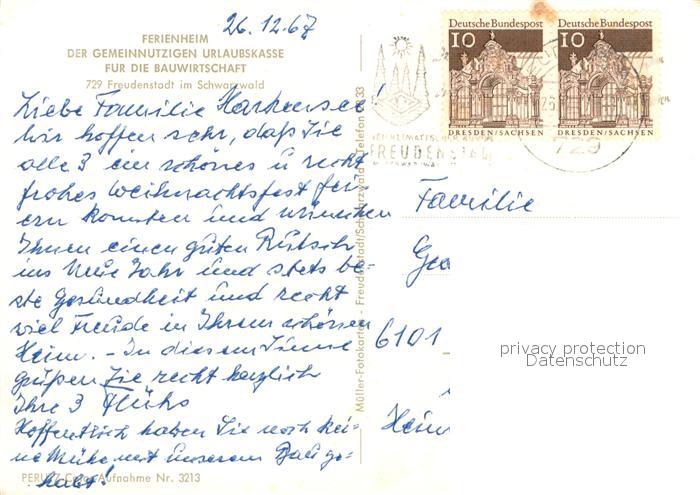 26.12.67
FERIENHEIM
DER GEMEINNUTZIGEN URLAUBSKASSE
FÜR DIE BAUWIRTSCHAFT
729 Freudenstadt im Schwarzwald
Liebe Familie
Wir hoffen sehr, daß Sie
alle 3 ein schönes u recht
frohes Weihnachtsfest fei-
ern konnten und wünschen
Ihnen einen guten Rutsch
ins Neue Jahr und stets be-
ste Gesundheit und recht
viel Freude in Ihrem schönen
Heim. - In diesem Sinne
grüßen Sie recht herzlich
Ihre 3
Hoffentlich haben Sie noch kei-
ne Mühe mit unserem
habt!
PERUTZ Color-Aufnahme Nr. 3213
Müller-Fotokarten - Freudenstadt/Schwarzwald Telefon
Deutsche Bundespost
10
DRESDEN/SACHSEN
Deutsche Bundespost
10
DRESDEN/SACHSEN
FREUDENSTADT
729
Familie
6101
privacy protection
Datenschutz